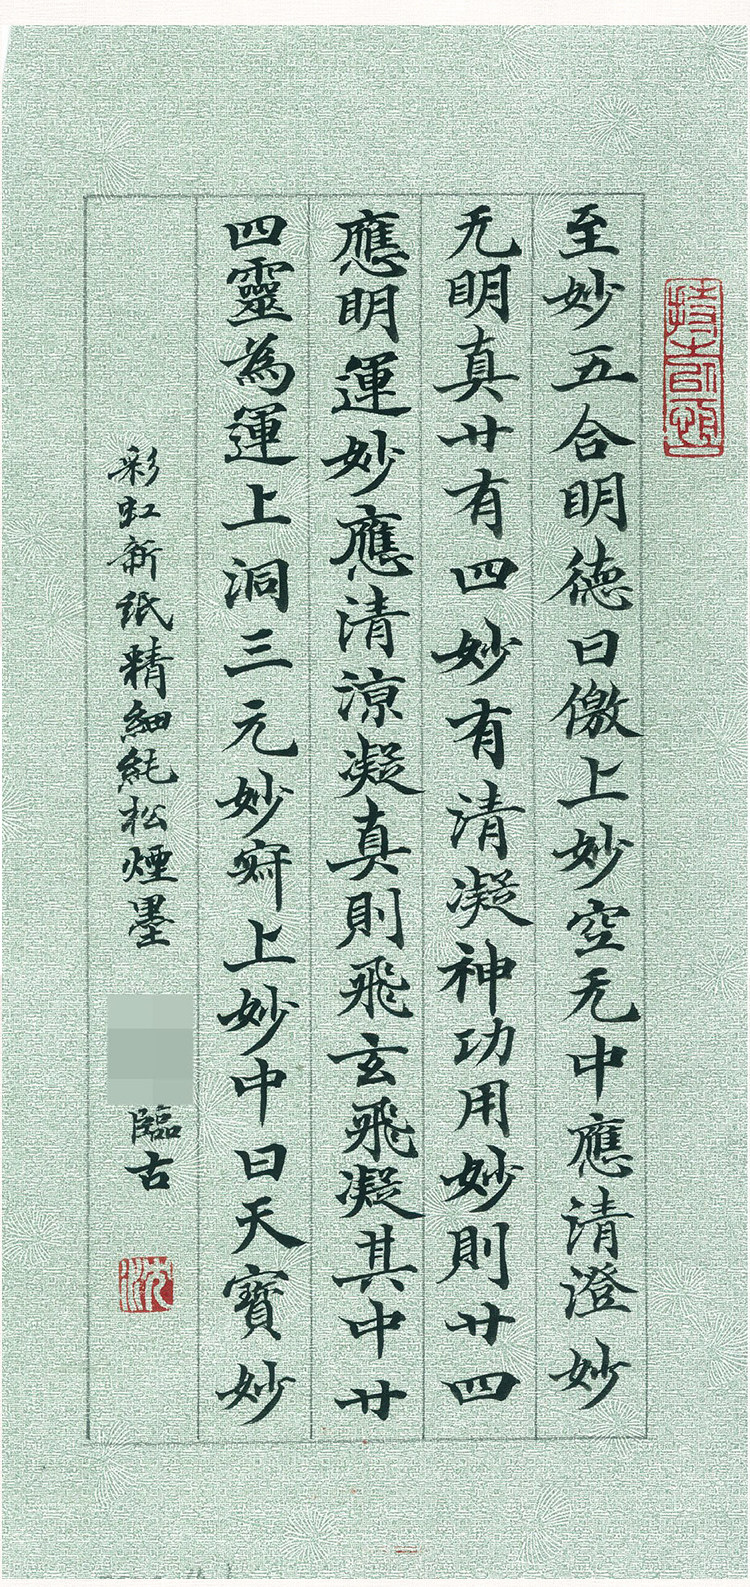 至妙五合明德曰儌上妙空无中應清澄妙
无明真廿有四妙有清凝神功用妙則廿四
應明運妙應清涼凝真則飛玄飛凝其中廿
四靈為運上洞三元妙穽上妙中曰天寶妙
彩虹新紙精細純松煙墨
臨古